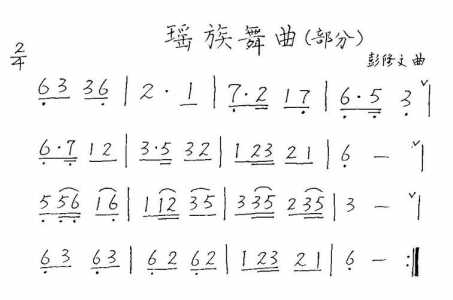 瑶族舞曲(部分)
2/4
彭修文曲
63 36 | 2· 1 | 7·2 17 | 6·5 3 ˅|
6·7 12 | 3·5 32 | 123 21 | 6 – ˅|
556 16 | 112 35 | 335 235 | 3 – ˅|
63 63 | 62 62 | 123 21 | 6 – :‖